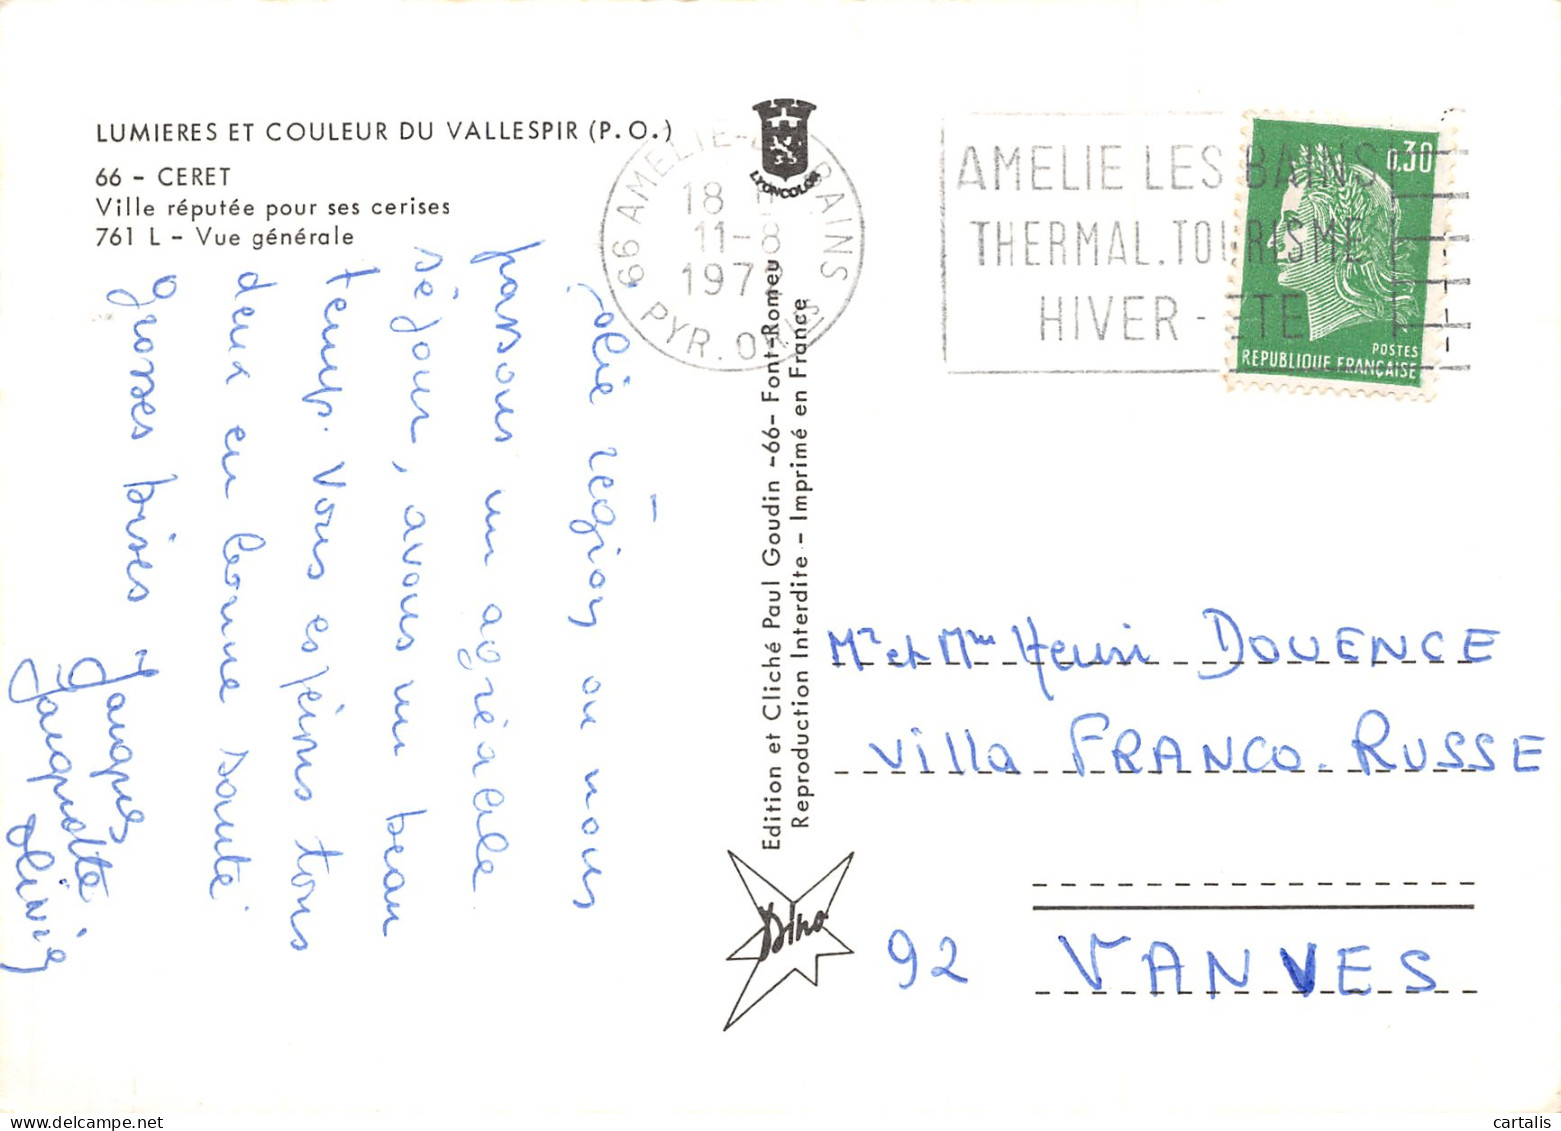 LUMIERES ET COULEUR DU VALLESPIR (P.O.)
66 - CERET
Ville réputée pour ses cerises
761 L - Vue générale
Jolie région où nous
passons un agréable
séjour, avons un beau
temps. Vous espérons tous
deux en bonne santé
Grosses bises
Jacques
Jacquotte
Olivier
LYONCOLOR
66 AMELIE-LES-BAINS
18 H
11-8
197
PYR. ORles
AMELIE LES BAINS
THERMAL. TOURISME
HIVER - ETE
0,30
POSTES
REPUBLIQUE FRANÇAISE
Edition et Cliché Paul Goudin -66- Font-Romeu
Reproduction Interdite - Imprimé en France
Dino
Mr et Mme Henri DOUENCE
Villa FRANCO-RUSSE
92 VANVES
cartalis